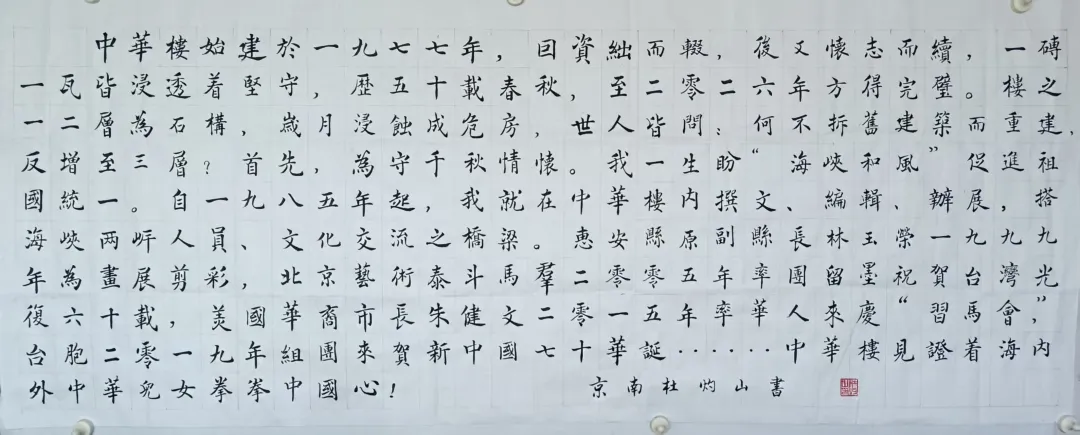 中華樓始建於一九七七年，囙資絀而輟，後又懷志而續，一磚
一瓦皆浸透着堅守，歷五十載春秋，至二零二六年方得完璧。樓之
一二層為石構，嵗月浸蝕成危房，世人皆問：何不拆舊建築而重建，
反增至三層？首先，為守千秋情懷。我一生盼“海峽和風”促進祖
國統一。自一九八五年起，我就在中華樓內撰文、編輯、辦展，搭
海峽两岍人員、文化交流之橋梁。惠安縣原副縣長林玉榮一九九九
年為畫展剪彩，北京藝術泰斗馬羣二零零五年率團留墨祝賀台灣光
復六十載，美國華裔市長朱健文二零一五年率華人來慶“習馬會”，
台胞二零一九年組團來賀新中國七十華誕……中華樓見證着海內
外中華兒女拳拳中國心！ 京南杜灼山書